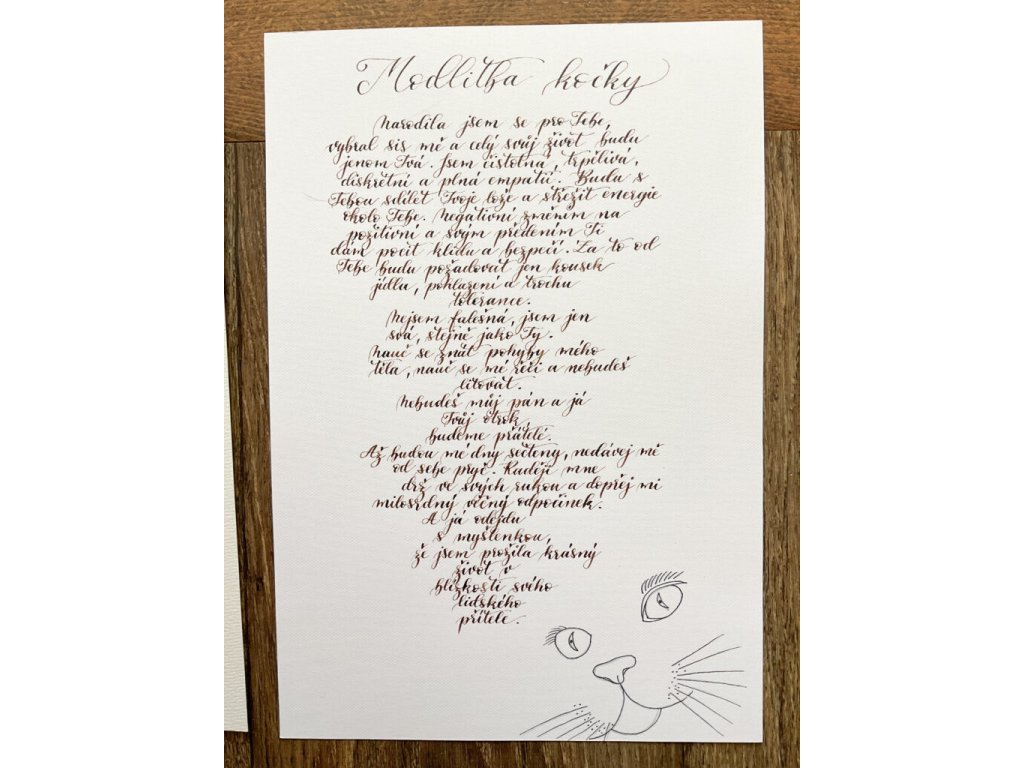 Modlitba kočky
Narodila jsem se pro Tebe,
vybral sis mě a celý svůj život budu
jenom Tvá. Jsem čistotná, trpělivá,
diskrétní a plná empatií. Budu s
Tebou sdílet Tvoje lože a střežit energie
okolo Tebe. Negativní změním na
pozitivní a svým předením Ti
dám pocit klidu a bezpečí. Za to od
Tebe budu požadovat jen kousek
jídla, pohlazení a trochu
tolerance.
Nejsem falešná, jsem jen
svá, stejně jako Ty.
Nauč se znát pohyby mého
těla, nauč se mé řeči a nebudeš
litovat.
Nebudeš můj pán a já
Tvůj otrok,
budeme přátelé.
Až budou mé dny sečteny, nedávej mě
od sebe pryč. Raději mne
drž ve svých rukou a dopřej mi
milosrdný věčný odpočinek.
A já odejdu
s myšlenkou,
že jsem prožila krásný
život v
blízkosti svého
lidského
přítele.